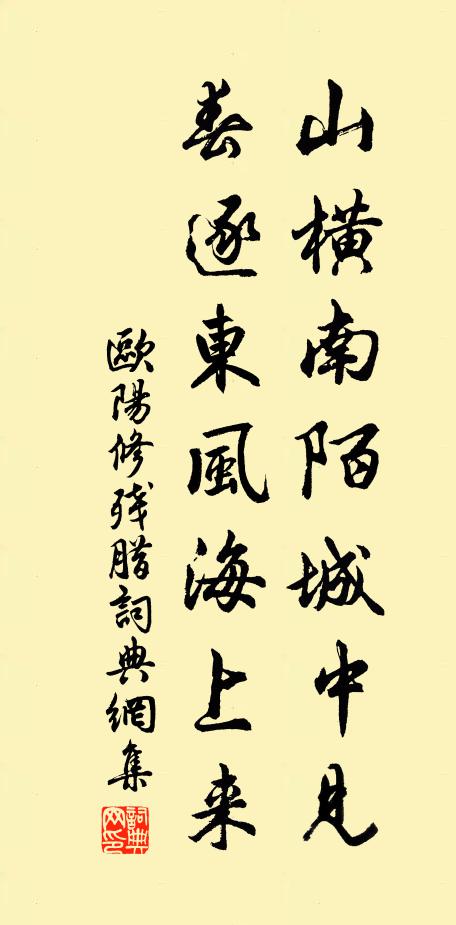 山橫南陌城中見
春逐東風海上来
歐陽修残腊詞典網集
詞典网印